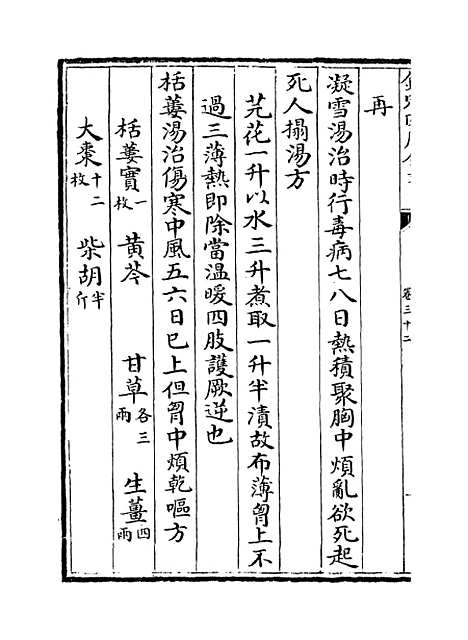 卷三十二
再
凝雪湯治時行毒病七八日熱積聚胸中煩亂欲死起
死人搨湯方
芫花一升以水三升煮取一升半漬故布薄胷上不
過三薄熱即除當温暖四肢護厥逆也
栝蔞湯治傷寒中風五六日已上但胷中煩乾嘔方
栝蔞實一枚 黄芩 甘草各三兩 生薑四兩
大棗十二枚 柴胡半斤